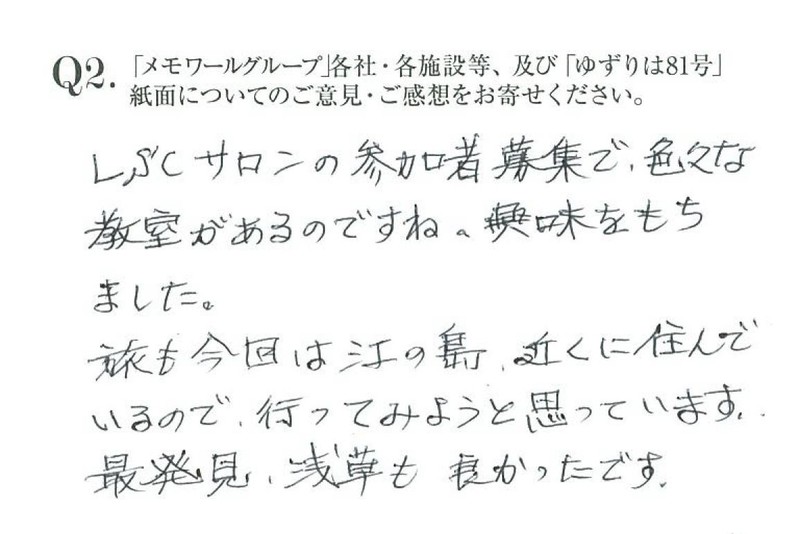 Q2.「メモワールグループ」各社・各施設等、及び「ゆずりは81号」
紙面についてのご意見・ご感想をお寄せください。
LSCサロンの参加者募集で、色々な
教室があるのですね。興味をもち
ました。
旅も今回は江の島、近くに住んで
いるので、行ってみようと思っています。
最発見、浅草も良かったです。